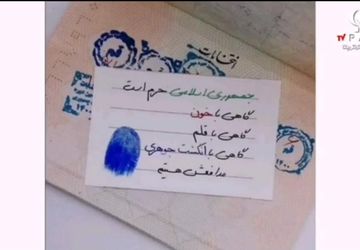 انتخابات
جمهوری اسلامی حرم است
گاهی با خون
گاهی با قلم
گاهی با انگشت جوهری
مدافعش هستیم
TV